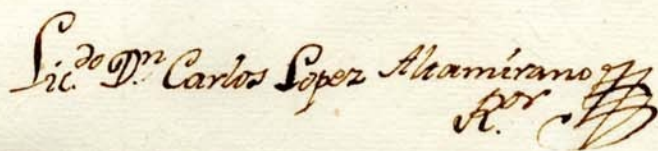 Lic.do Dn Carlos Lopez Altamirano
R.or